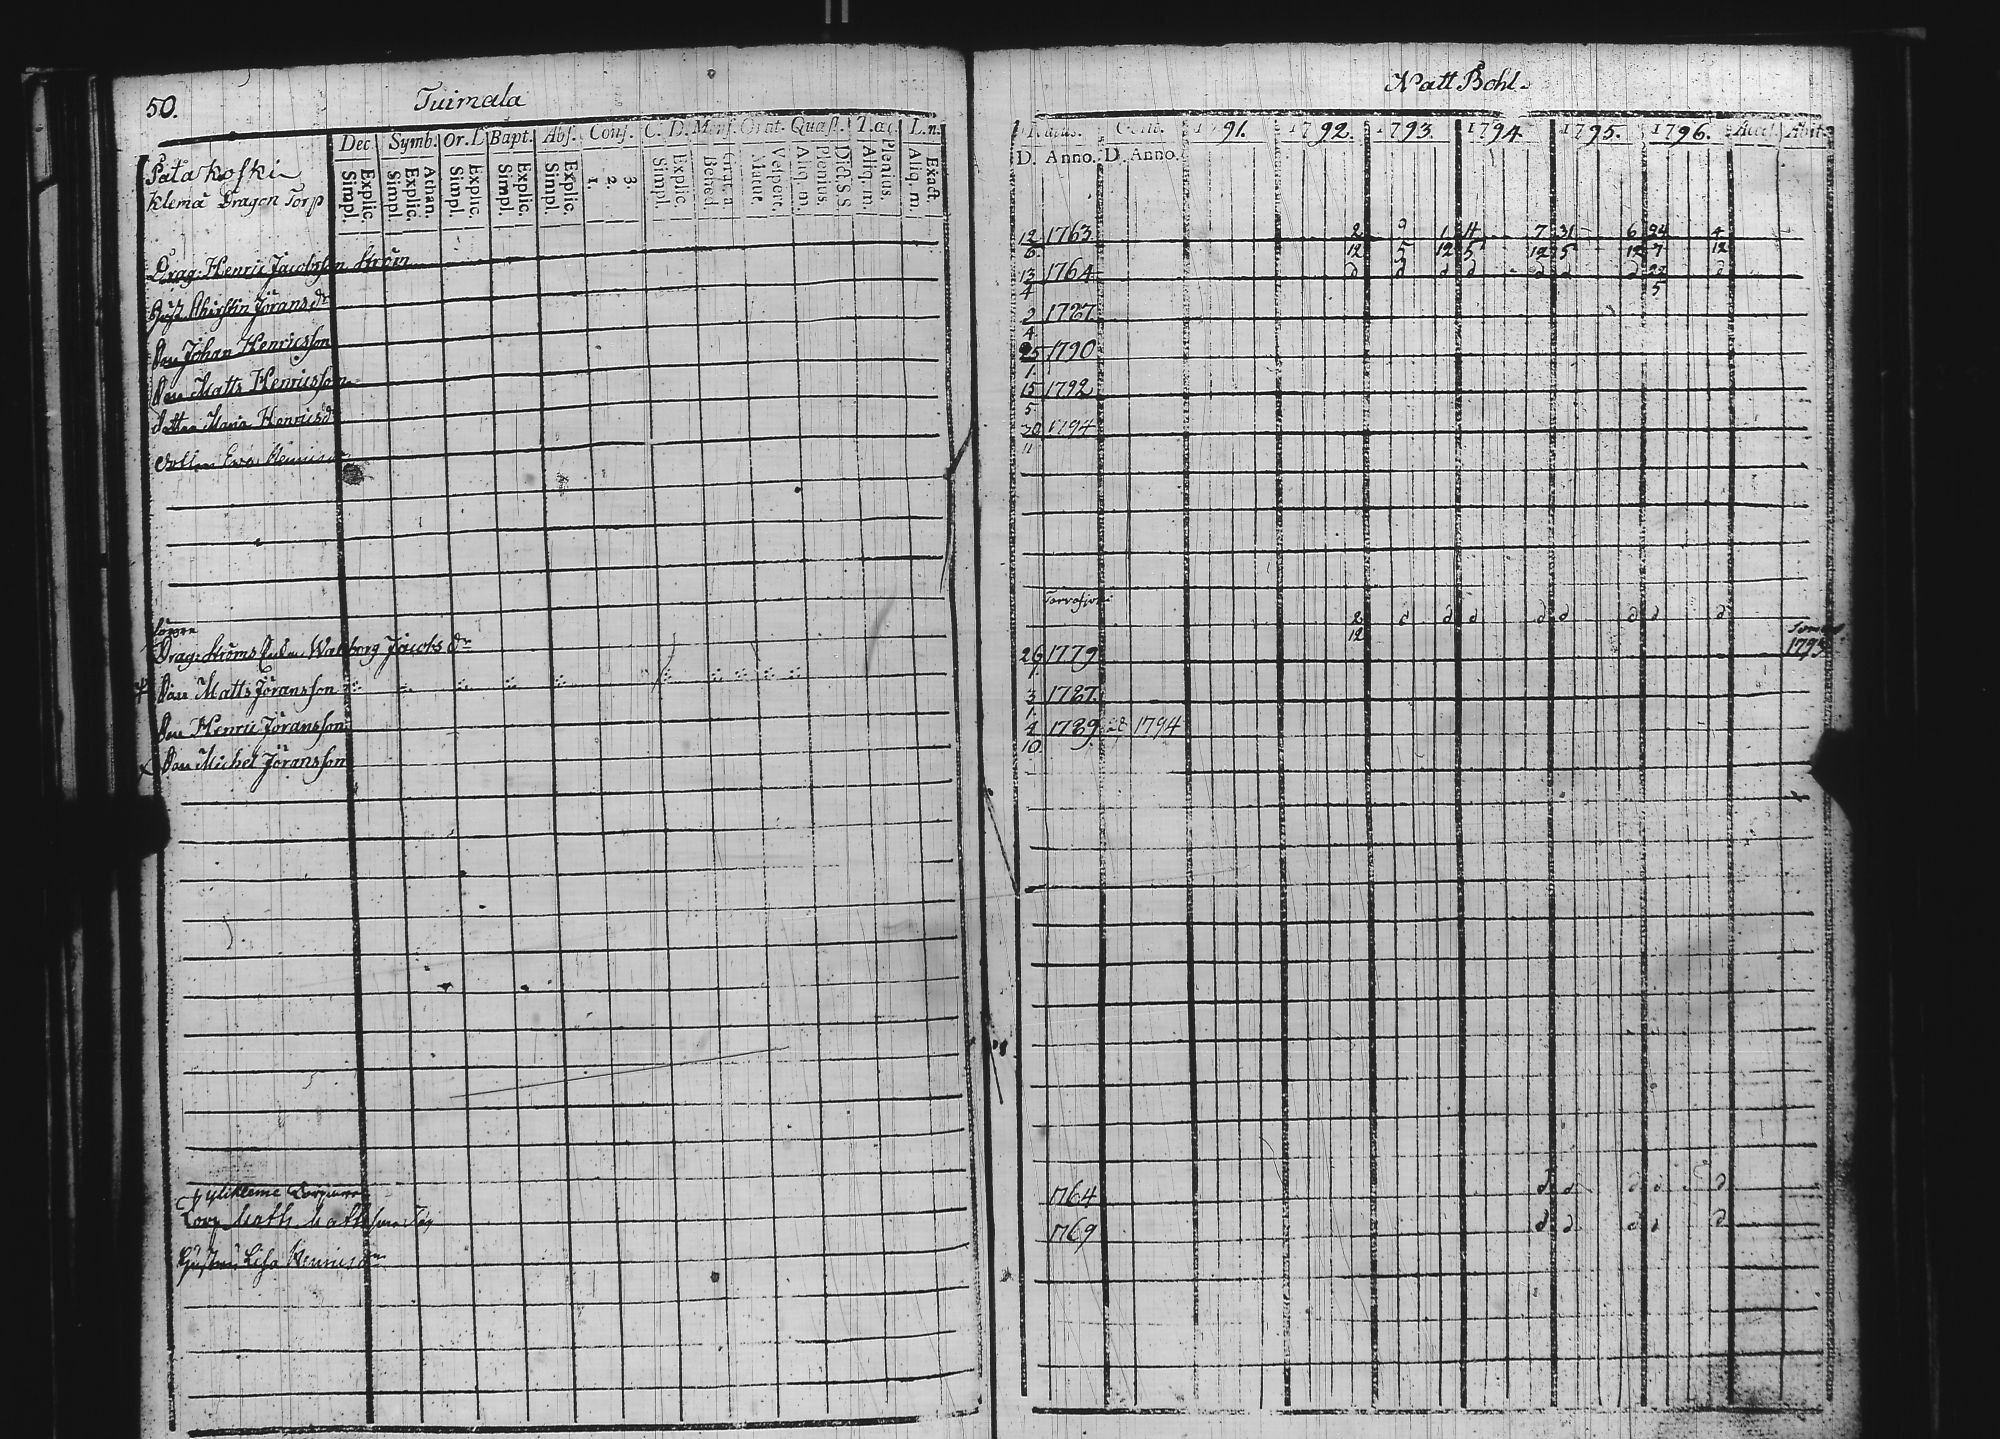 50.
Tuimala
Dec. Symb. Or. D. Bapt. Abs. Conf. C. D. Mens. Orat. Quæst. T. a c. L. n.
Simpl. Explic. Simpl. Explic. Athan. Simpl. Explic. Simpl. Explic. Simpl. Explic. 1. 2. 3. Simpl. Explic. Bened. Grat. a Matut. Vespert. Aliq. m. Plenius. Dict. S. S. Aliq. m. Plenius. Aliq. m. Exact.
Pata koski
Klemä Dragon Torp
Drag: Henric Jacobsson Ström
Hust. Christin Jöransdr
Son Johan Henricsson
Son Matts Henricsson
Dotter Maria Henricsdr
Dotter Ewa
Drag: Ströms Enka Walborg Jacobsdr
Son Matts Jöransson
Son Henric Jöransson
Son Michel Jöransson
Torp Matts
Lisa Henricsdr
Natt Bohl.
Natus. 1791. 1792. 1793. 1794. 1795. 1796. Accel. Abit.
D. Anno. D. Anno.
12 1763 2 9 1 4 7 31 6 24 4
6 12 5 12 5 12 5 12 7 12
13 1764 d d d d d d d 22 d
4 5
2 1787
4
25 1790
1
15 1792
5
20 1794
11
2 d d d d d d d d
12
26 1779 1793
1
3 1787
1
4 1789 28 1794
10
1764 d d d d d
1769 d d d d d